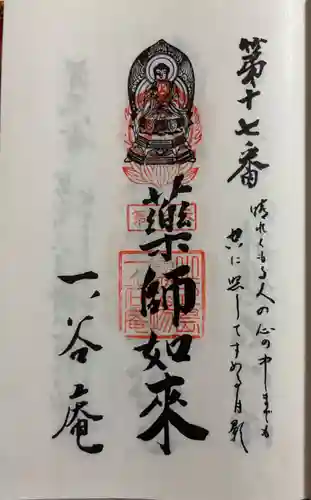 第十七番
晴れくもる人の心の中までも
空に照してすめる月影
薬師如來
一谷庵